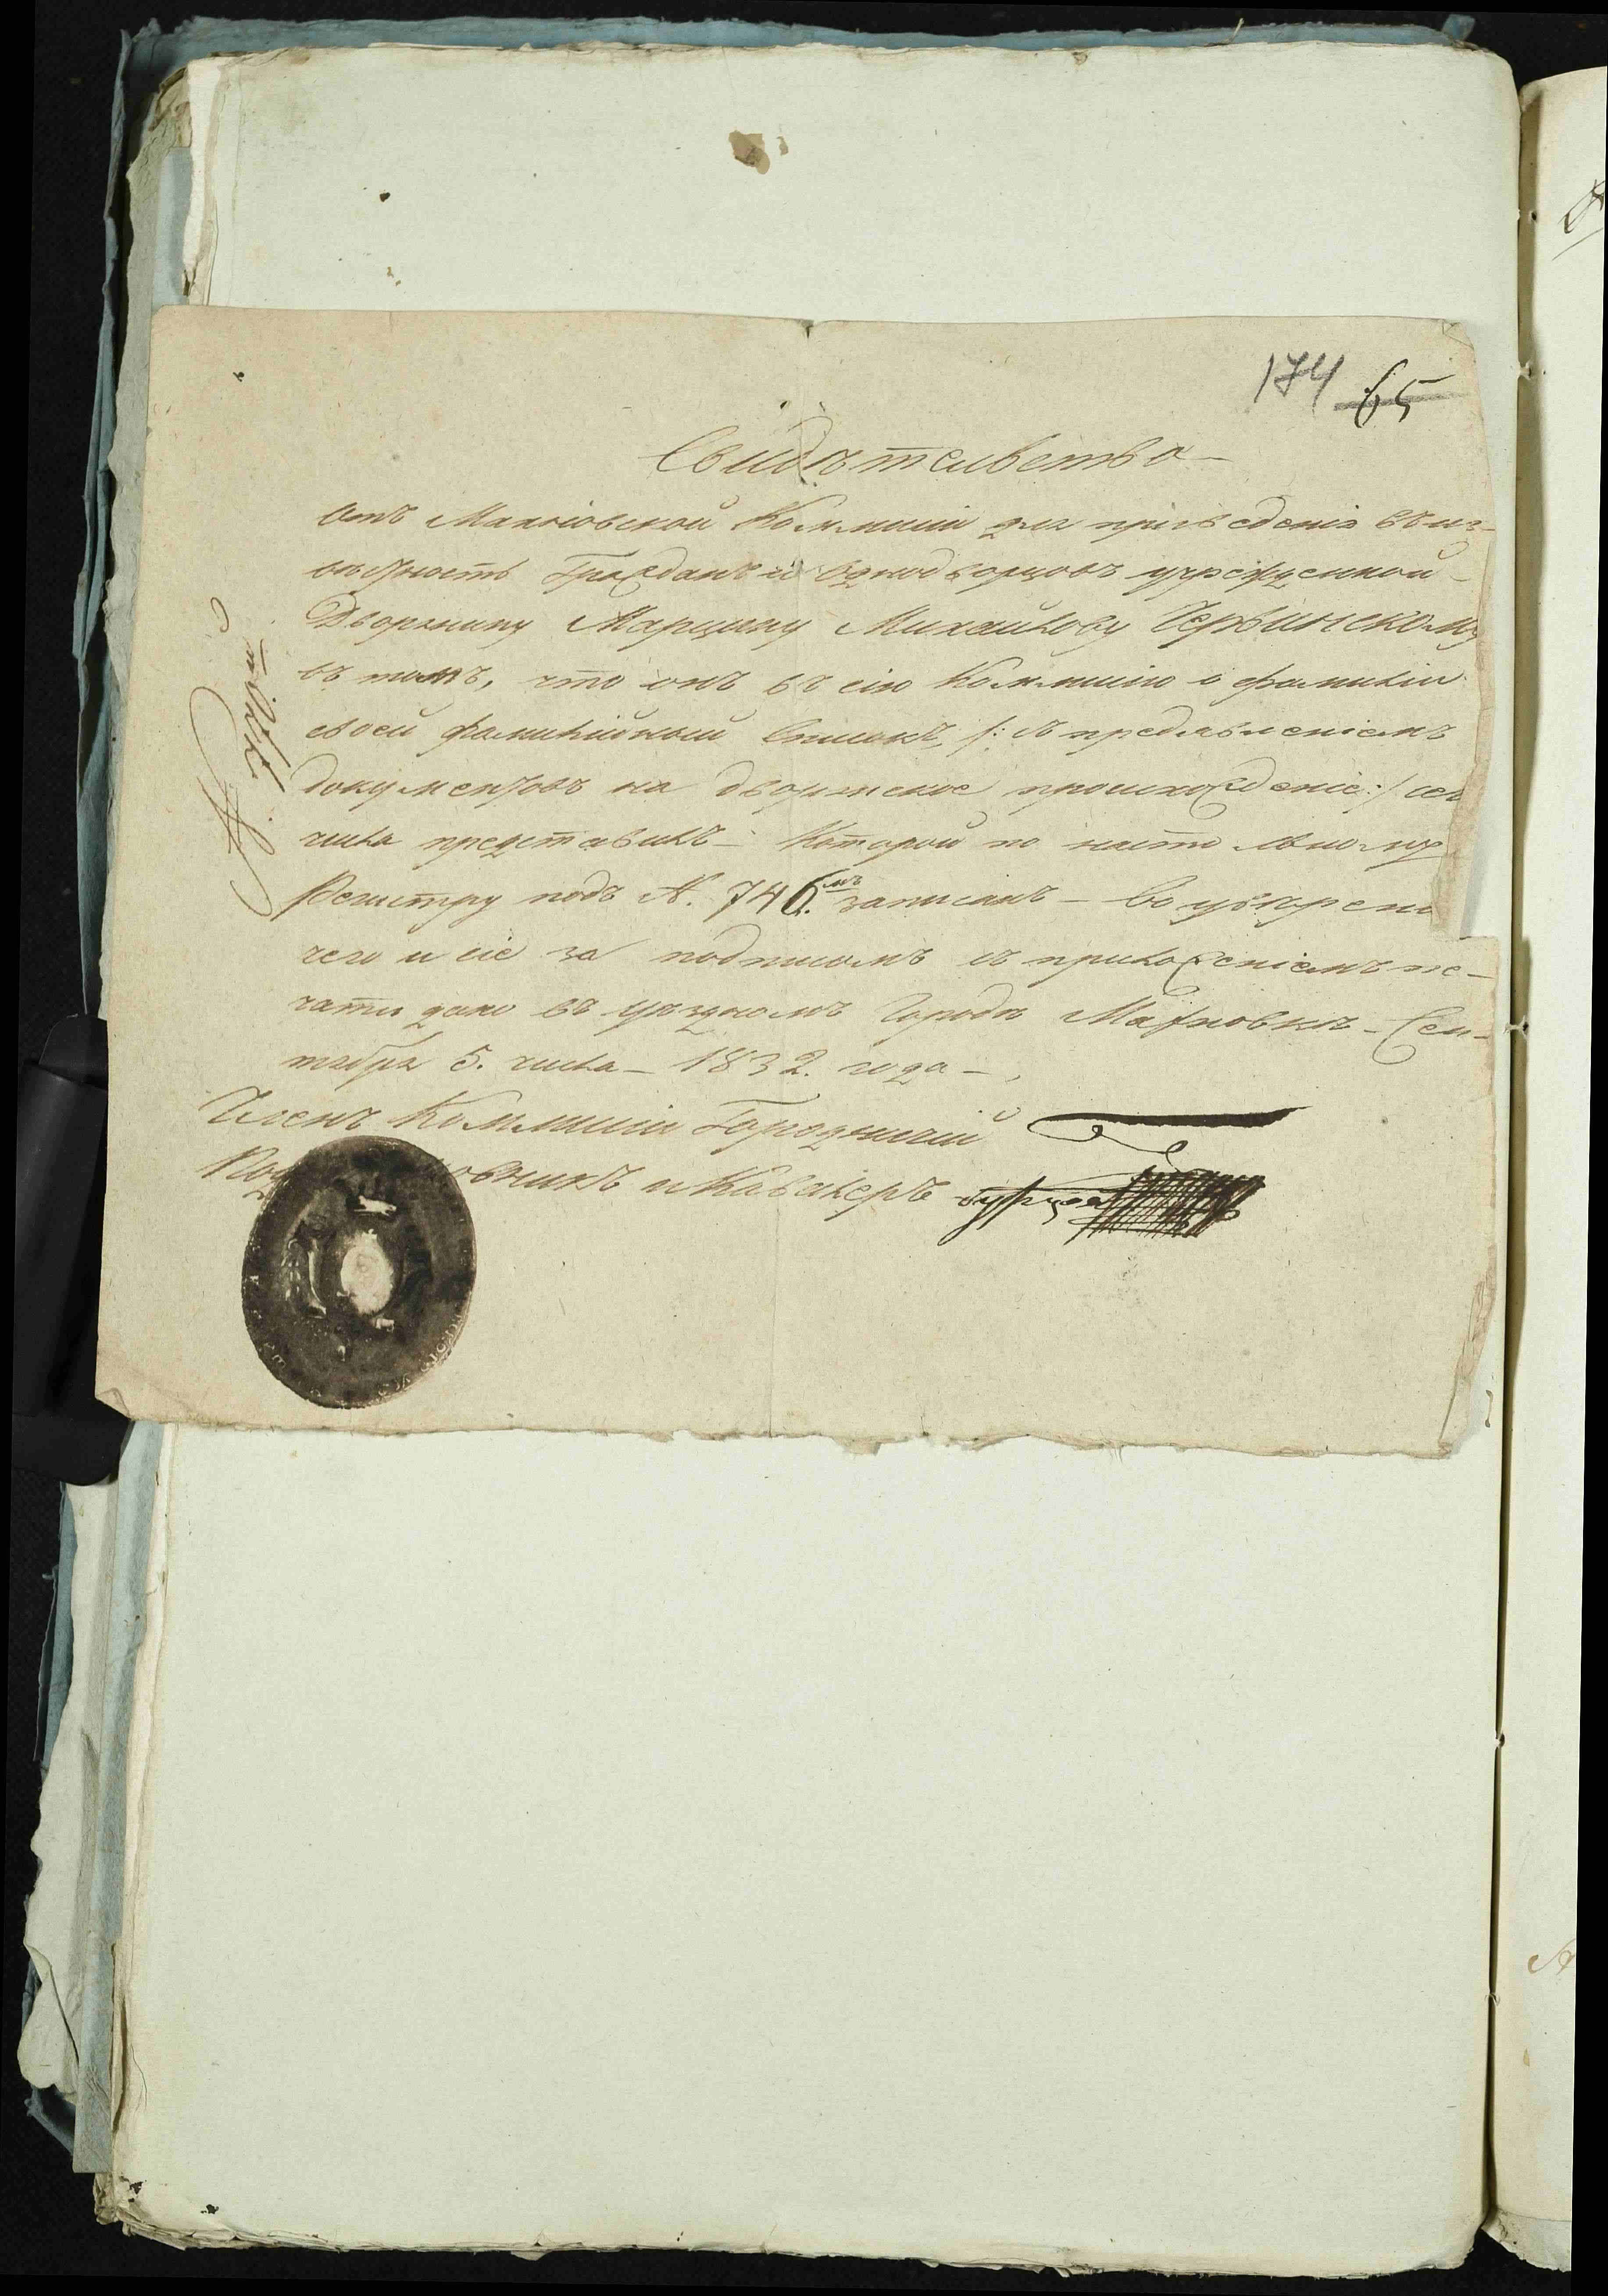 174 65
Свидѣтельство
Отъ Махновской Коммисіи для приведенія въ из-
вѣстность Гражданъ и Однодворцовъ учрежденной
Дворянину Марцину Михайлову Червинскому
въ томъ, что онъ въ сію Коммисію о фамиліи
своей фамилійной Списокъ /: съ предъявленіемъ
документовъ на дворянское происхожденіе :/ сего
числа представилъ Которой по настольному
Регистру подъ N. 746.мъ записанъ - Во увѣрені
чего и сіе за подписомъ съ приложеніемъ пе-
чати дано въ уѣздномъ Городѣ Махновкѣ - Сен-
тября 5. числа - 1832. года -
Членъ Коммисіи Городничій
Под овникъ и Кавалеръ